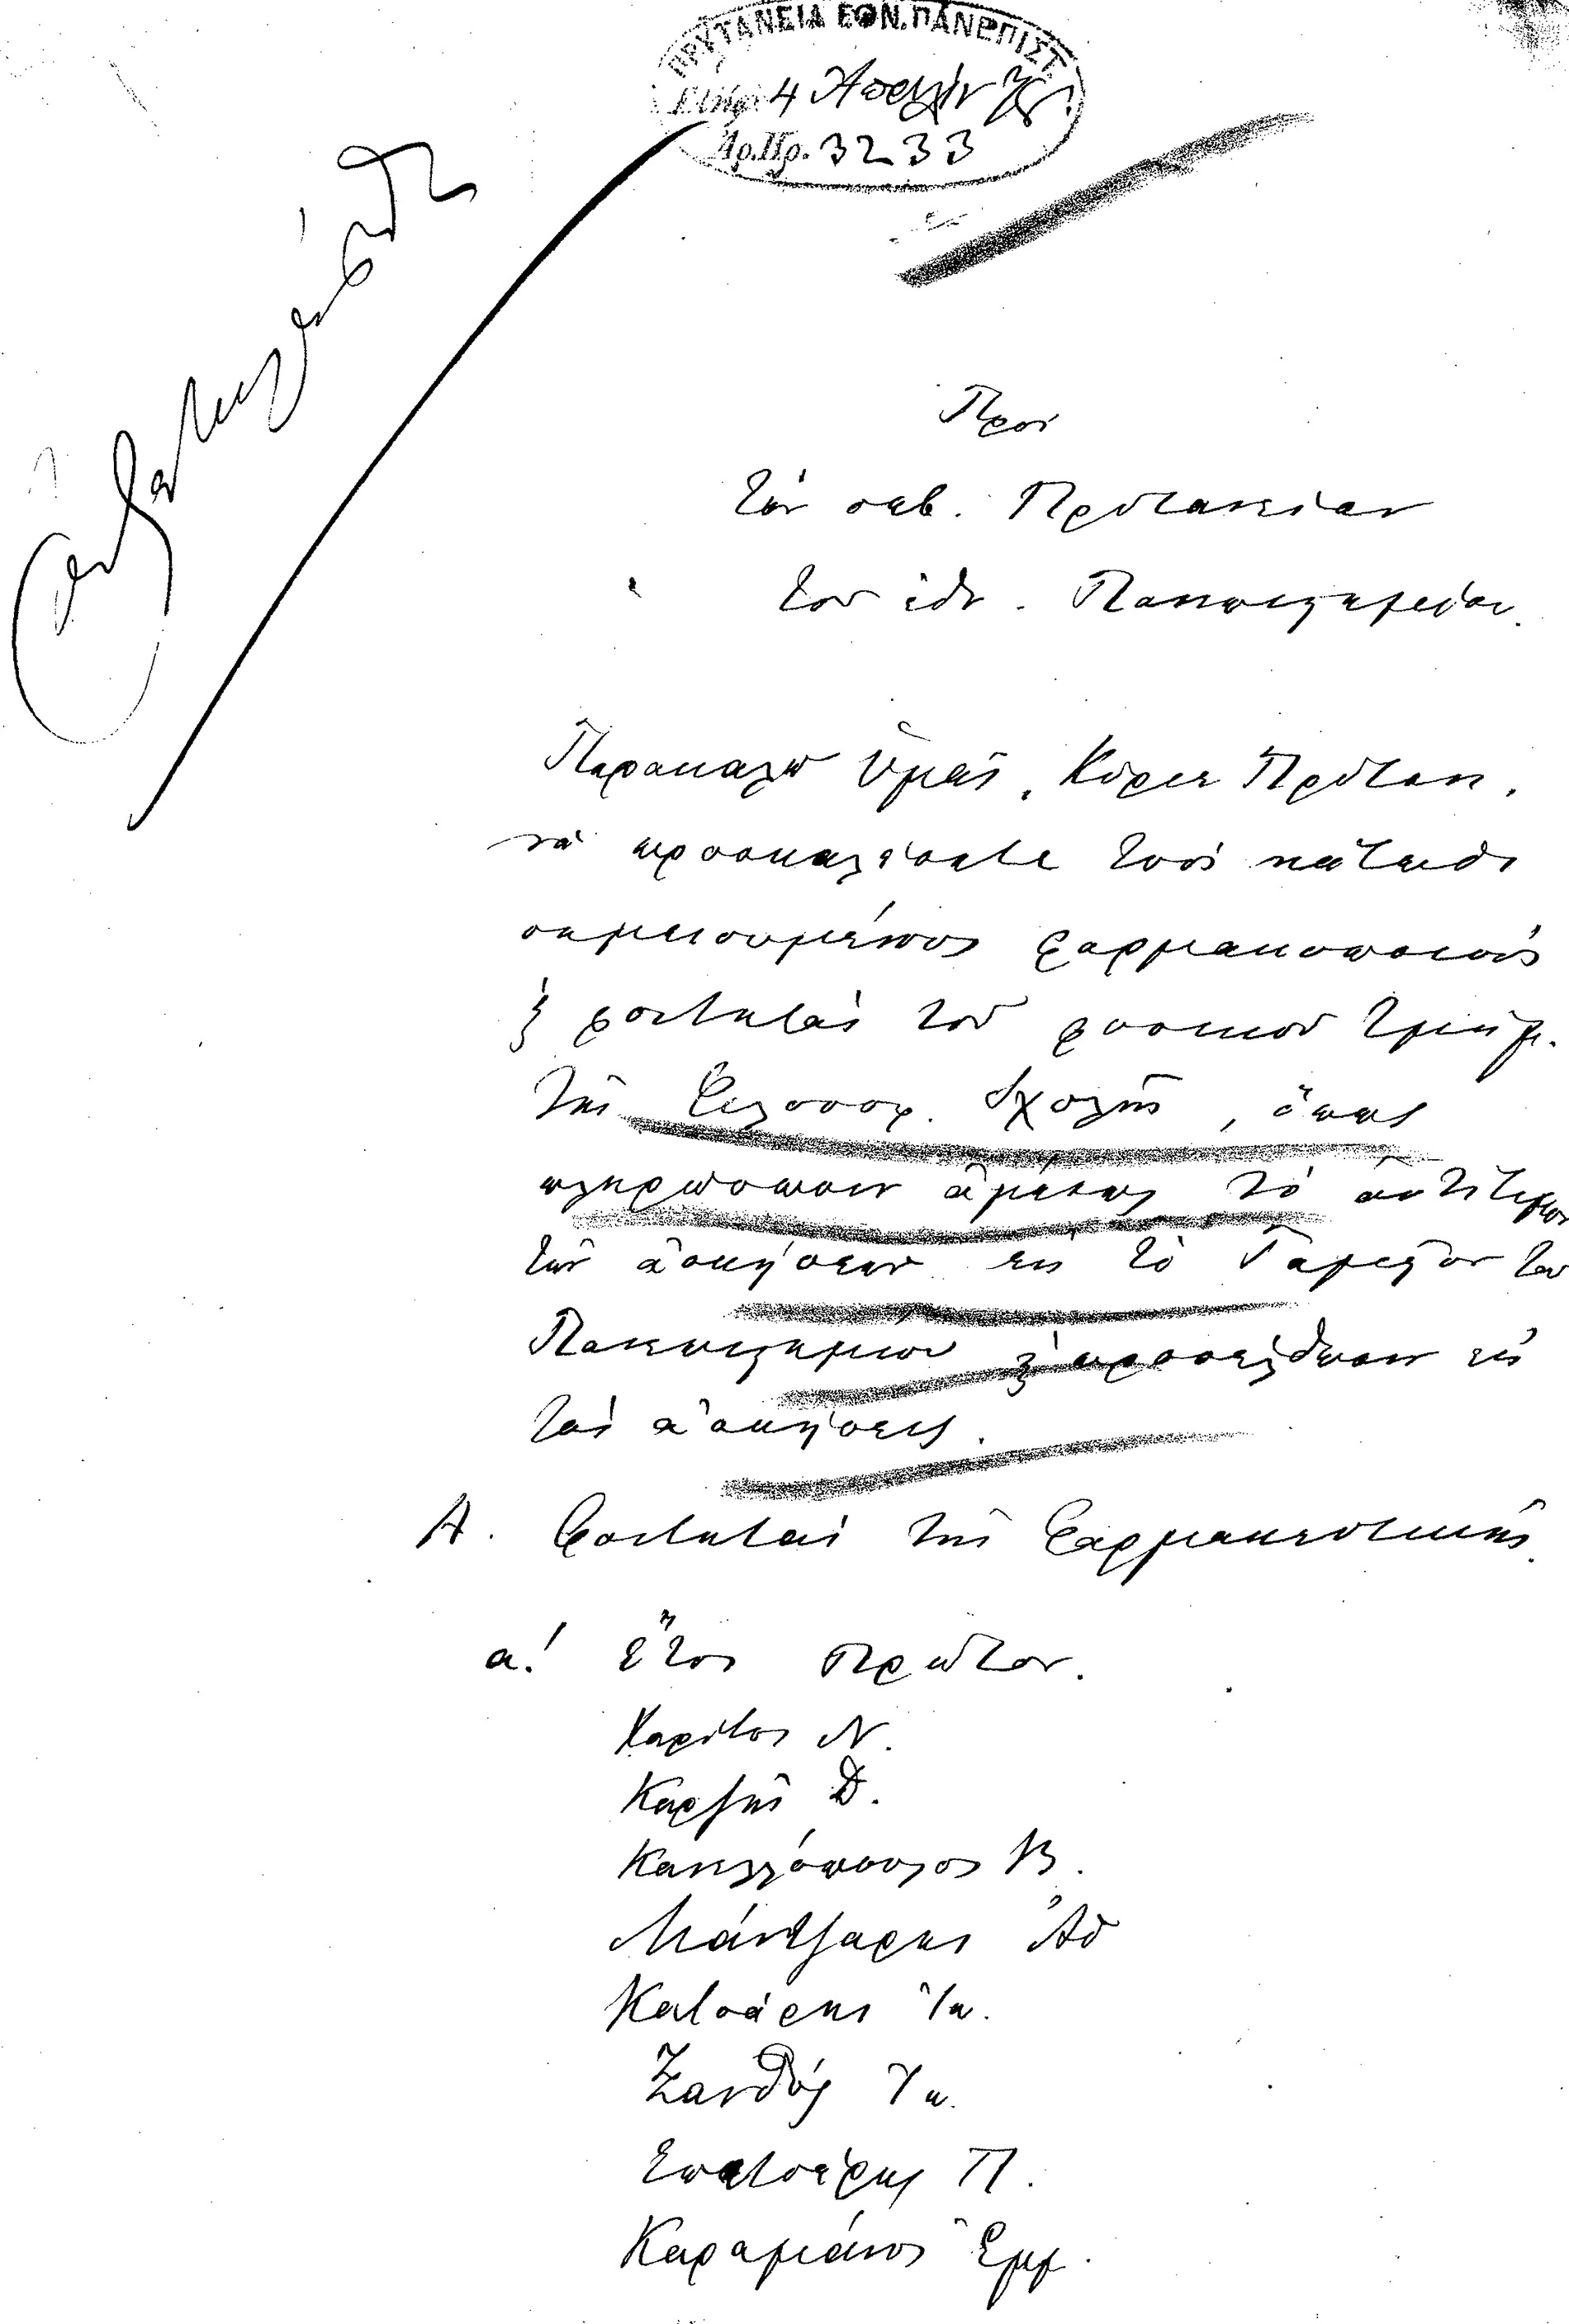 ΠΡΥΤΑΝΕΙΑ ΕΘΝ. ΠΑΝΕΠΙΣΤ.
4 Απριλίου
Αρ.Πρ. 3233
Πρὸς
τὴν σεβ. Πρυτανείαν
τοῦ ἐθν. Πανεπιστημείου.
Παρακαλῶ ὑμᾶς, Κύριε Πρύτανι,
νὰ προσκαλέσητε τοὺς κάτωθι
σημειουμένους φαρμακοποιοὺς
ϗ φοιτητὰς τοῦ φυσικοῦ τμήμ.
τῆς Φιλοσοφ. Σχολῆς, ὅπως
πληρώσωσιν ἀμέσως τὸ ἀντίτιμον
τῶν ἀσκήσεων εἰς τὸ Ταμεῖον τοῦ
Πανεπιστημίου ϗ προσέλθωσιν εἰς
τὰς ἀσκήσεις.
Α. Φοιτηταὶ τῆς Φαρμακευτικῆς.
α! Ἔτος Πρῶτον.
Χαρίτος Ν.
Καρζῆς Δ.
Κανελλόπουλος Β.
Μάντζαρης Ἀθ
Κατσάρης Ἰω.
Ξανθὸς Ἰω.
Σπατσάρης Π.
Καραμάνος Ἐμμ.